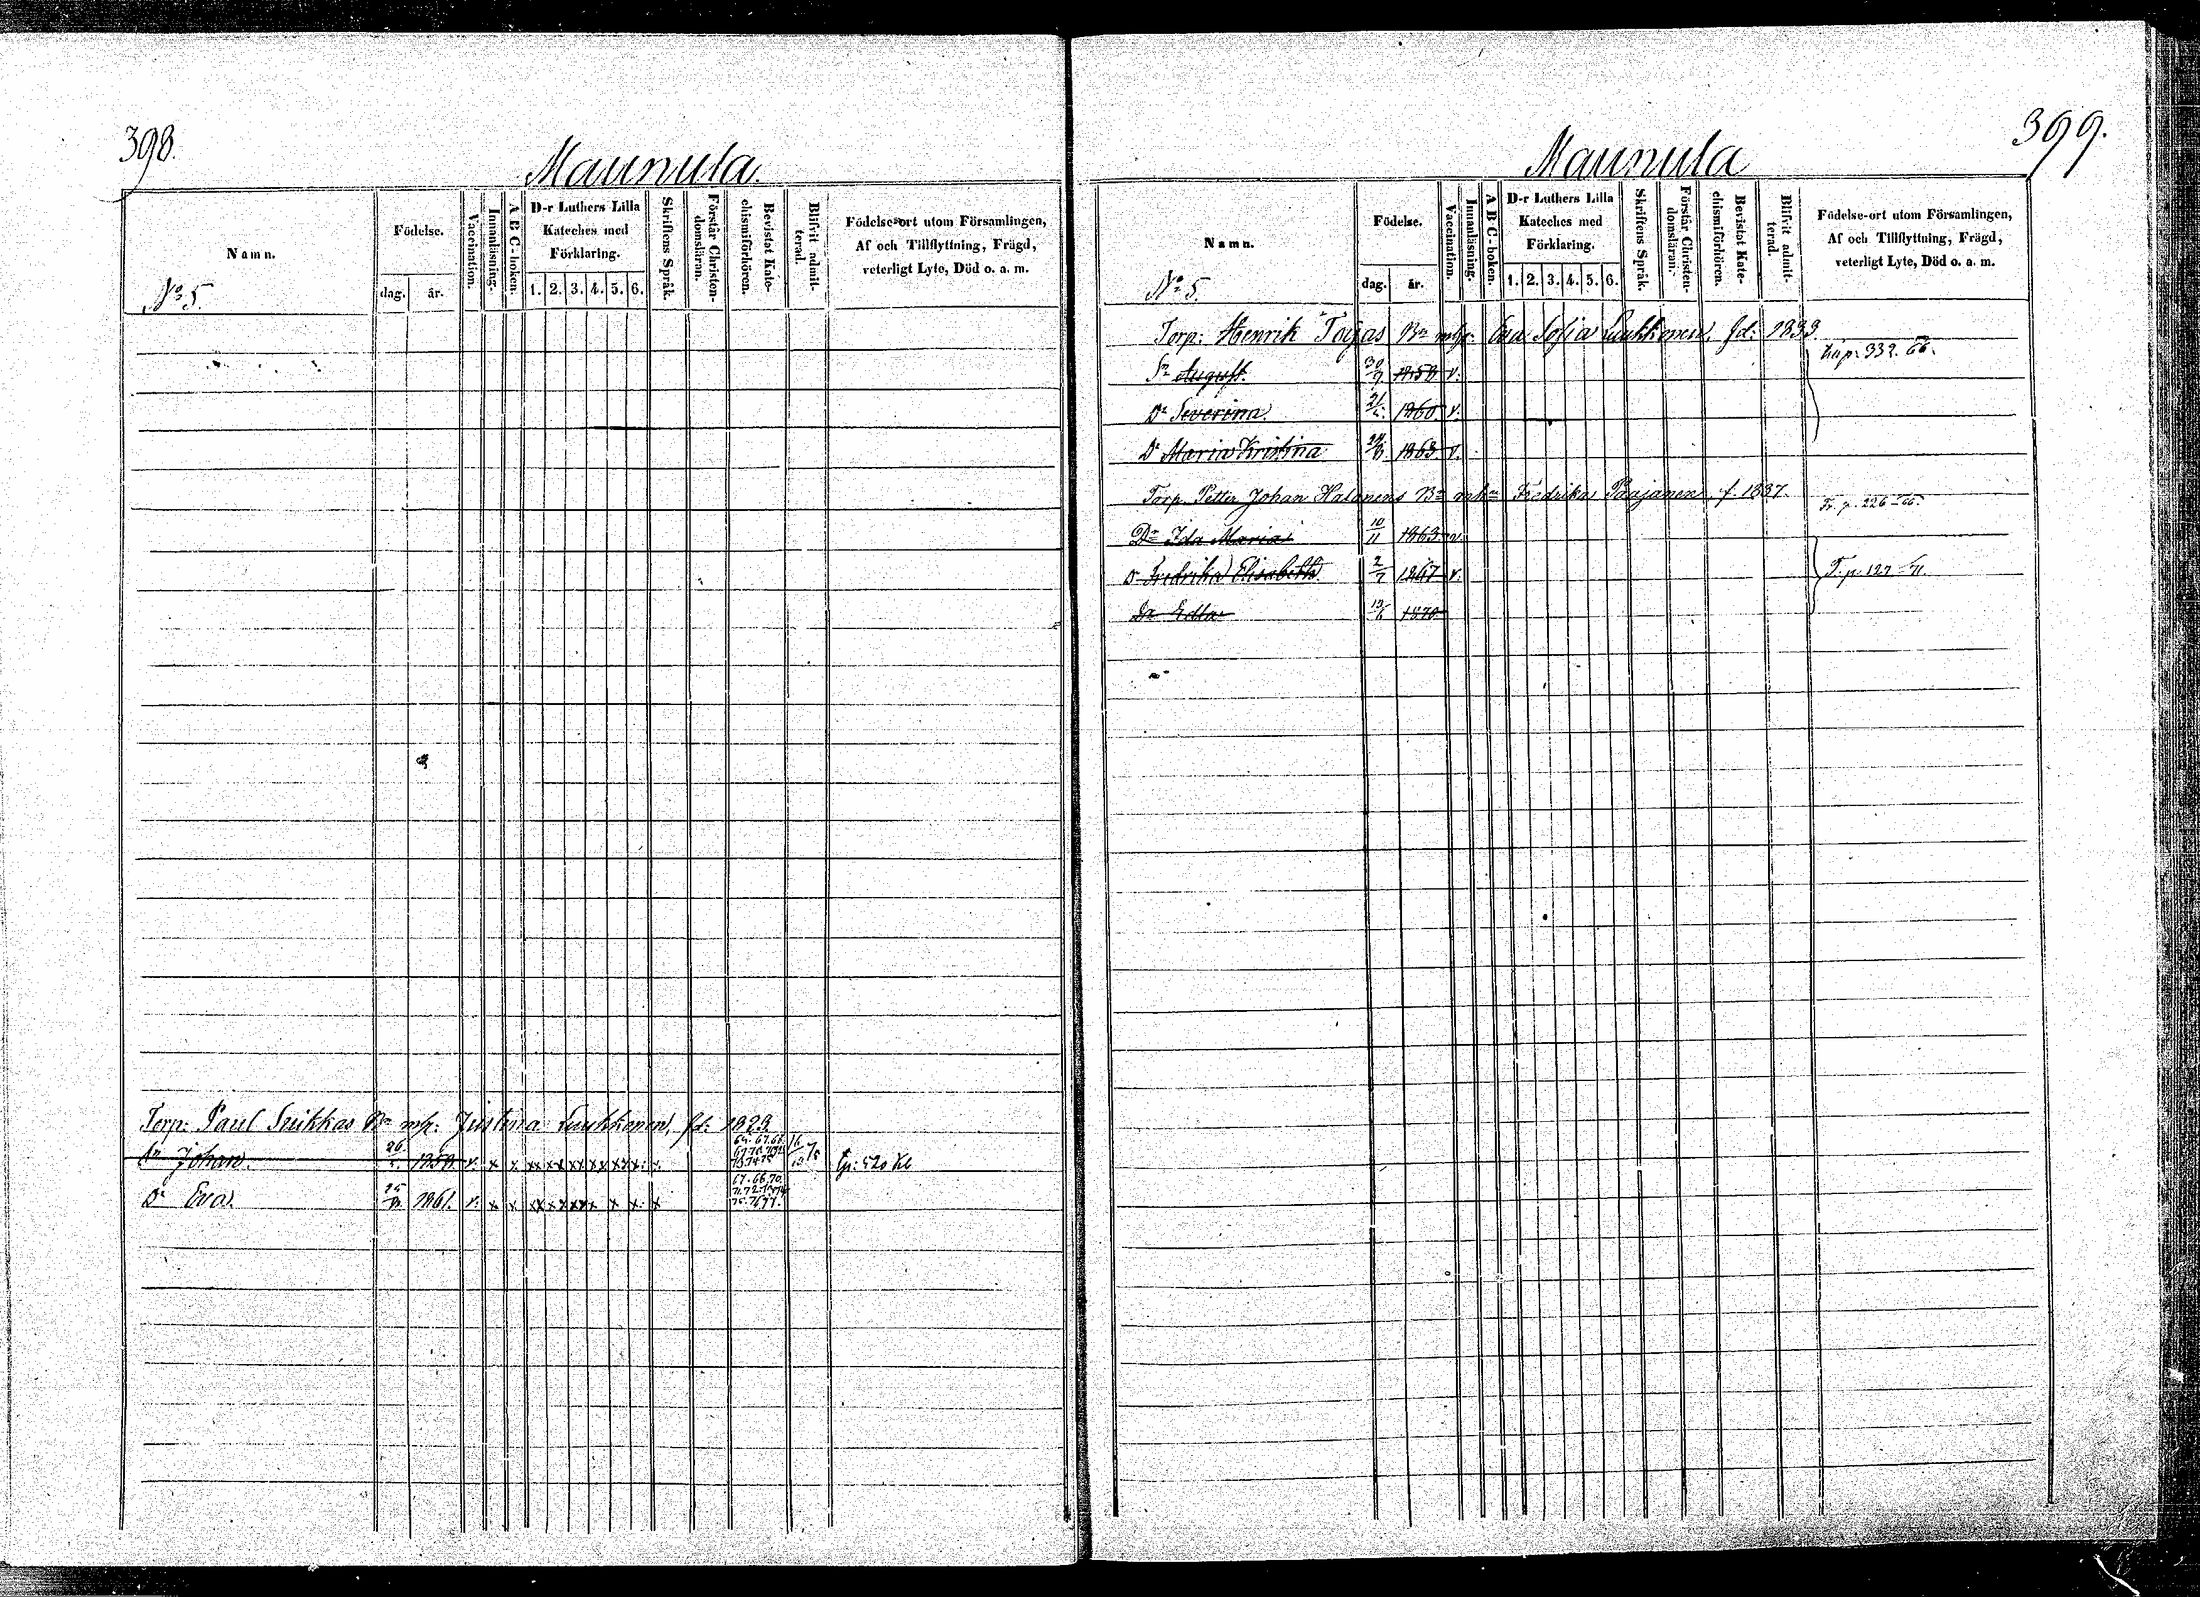 398.
Maunula.
Namn.
Födelse.
dag.
år.
Vaccination.
Innanläsning.
A B C-boken.
D-r Luthers Lilla
Kateches med
Förklaring.
1. 2. 3. 4. 5. 6.
Skriftens Språk.
Förstår Christen-
domsläran.
Bevistat Kate-
chismiförhören.
Blifvit admit-
terad.
Födelse-ort utom Församlingen,
Af och Tillflyttning, Frägd,
veterligt Lyte, Död o. a. m.
No 5.
Torp: Paul Suikkas Bn m/h: Justina Luukkonen, fd: 1823
Sn Johan. 26 1859. v. x x xx xx xx xx xx x.
Dr Eva. 1861. v. x x xx xx xx x x x. x
399.
Maunula
Namn.
Födelse.
dag.
år.
Vaccination.
Innanläsning.
A B C-boken.
D-r Luthers Lilla
Kateches med
Förklaring.
1. 2. 3. 4. 5. 6.
Skriftens Språk.
Förstår Christen-
domsläran.
Bevistat Kate-
chismiförhören.
Blifvit admit-
terad.
Födelse-ort utom Församlingen,
Af och Tillflyttning, Frägd,
veterligt Lyte, Död o. a. m.
No 5.
Torp: Henrik Toijas Bn m/h: Eva Sofia Luukkonen, fd: 1833.
Sn August. 30/7 1858 v. p: 332. 66.
Dr Severina. 21 1860 v.
Dr Maria Kristina 1863 v.
Torp. Petter Johan Halonens Bn Fredrika Paajanen, f. 1837.
Fr. p. 226 66.
Dr Ida Maria 10/11 1863 v.
Dr Fredrika Elisabeth 2/7 1867 v. T. p. 127 71.
Dr Edla 1870.